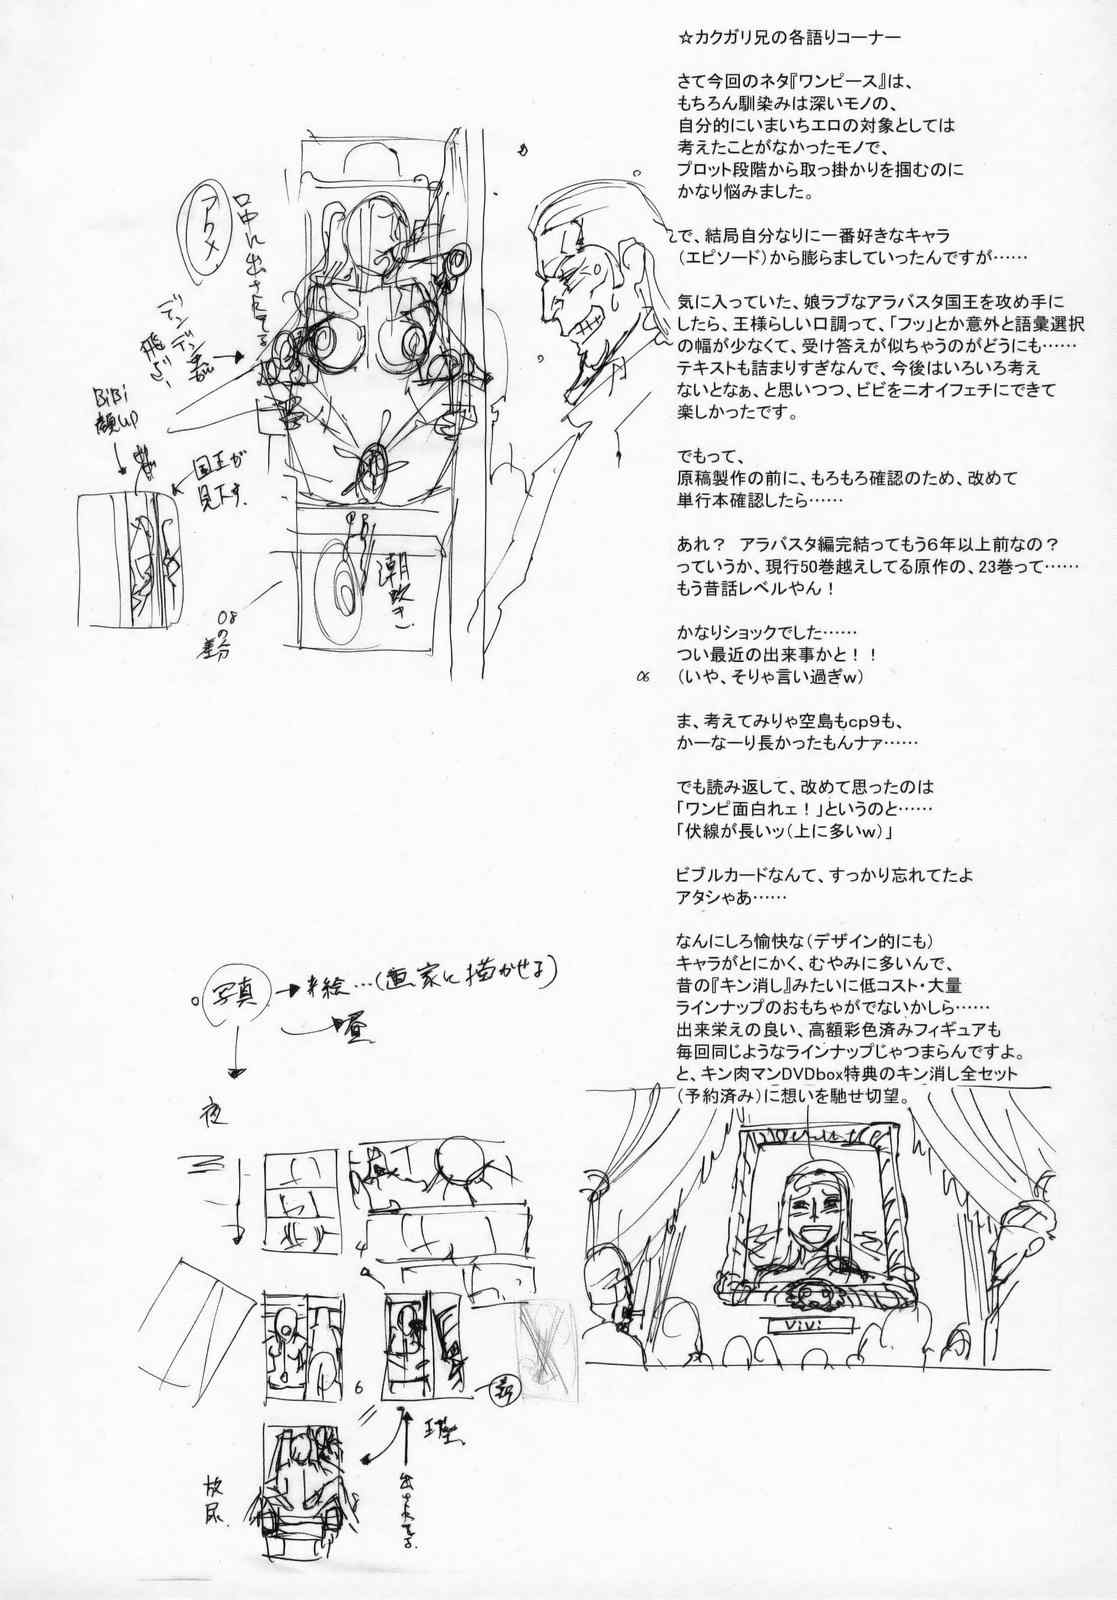 ☆カクガリ兄の各語りコーナー
さて今回のネタ『ワンピース』は、
もちろん馴染みは深いモノの、
自分的にいまいちエロの対象としては
考えたことがなかったモノで、
プロット段階から取っ掛かりを掴むのに
かなり悩みました。
で、結局自分なりに一番好きなキャラ
（エピソード）から膨らましていったんですが……
気に入っていた、娘ラブなアラバスタ国王を攻め手に
したら、王様らしい口調って、「フッ」とか意外と語彙選択
の幅が少なくて、受け答えが似ちゃうのがどうにも……
テキストも詰まりすぎなんで、今後はいろいろ考え
ないとなぁ、と思いつつ、ビビをニオイフェチにできて
楽しかったです。
でもって、
原稿製作の前に、もろもろ確認のため、改めて
単行本確認したら……
あれ？　アラバスタ編完結ってもう６年以上前なの？
っていうか、現行50巻越えしてる原作の、23巻って……
もう昔話レベルやん！
かなりショックでした……
つい最近の出来事かと！！
（いや、そりゃ言い過ぎｗ）
ま、考えてみりゃ空島もcp９も、
かーなーり長かったもんナァ……
でも読み返して、改めて思ったのは
「ワンピ面白れェ！」というのと……
「伏線が長いッ（上に多いｗ）」
ビブルカードなんて、すっかり忘れてたよ
アタシゃあ……
なんにしろ愉快な（デザイン的にも）
キャラがとにかく、むやみに多いんで、
昔の『キン消し』みたいに低コスト・大量
ラインナップのおもちゃがでないかしら……
出来栄えの良い、高額彩色済みフィギュアも
毎回同じようなラインナップじゃつまらんですよ。
と、キン肉マンDVDbox特典のキン消し全セット
（予約済み）に想いを馳せ切望。
アクメ
口中に出されてる
BiBi
顔up
国王が
見下す.
潮吹き
08
の
差分
06
写真
絵…(画家に描かせる)
昼
夜
4
6
8
放尿.
出されてる.
ViVi